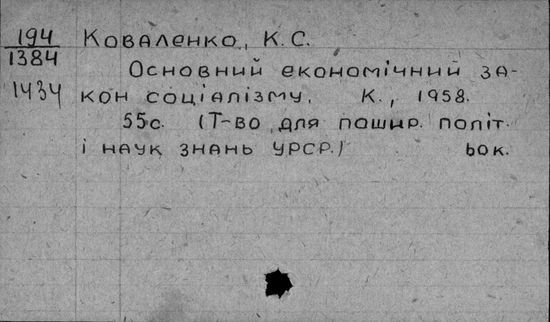 194 Коваленко, К.С.
1384
Основний економічний за-
1434 кон соціалізму. К., 1958.
55с. (Т-во для пошир. політ.
і наук знань УРСР.) 60к.